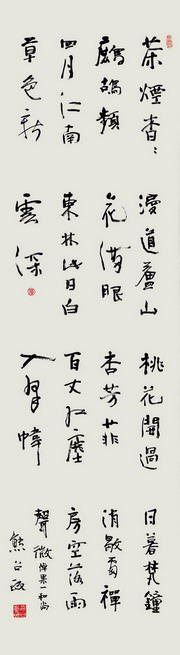 茶煙杳杳
鷓鴣頻
四月江南
草色新
漫道廬山
花滿眼
東林此日白
雲深
桃花開過
杏芳菲
百丈紅塵
入翠幃
日暮梵鐘
消歇禪
房空落雨
聲微
和尚
熊召政